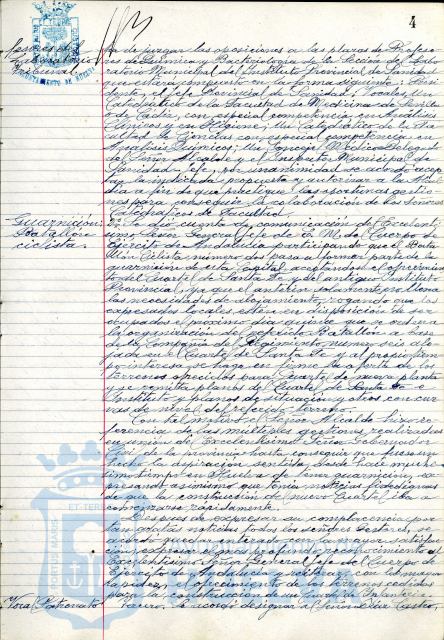 4
de juzgar las oposiciones a las plazas de Profesores
de Química y Bacteriología de la Sección de Laboratorio
Municipal del Instituto Provincial de Sanidad
que estará compuesto en la forma siguiente: Presidente,
el Jefe Provincial de Sanidad; Vocales: Un
Catedrático de la Facultad de Medicina de Sevilla
o de Cádiz, con especial competencia en Análisis
Clínicos e Higiene; Un Catedrático de la Facultad
de Ciencias con especial competencia en
Análisis Químicos; un Concejal Médico Delegado
del Señor Alcalde y el Inspector Municipal de
Sanidad Jefe, por unanimidad se acordó aceptar
la indicada propuesta y autorizar a la Alcaldía
a fin de que practique las oportunas gestiones
para conseguir la colaboración de los Señores
Catedráticos de Facultad.
Guarnición:
Batallón
ciclista.
Se dio cuenta de comunicación del Excelentísimo
Señor General Jefe del Cuerpo de
Ejército de Andalucía participando que el Batallón
Ciclista número dos pasa a formar parte de la
guarnición de esta Capital aceptando el ofrecimiento
del Cuartel de Santa Fe y del antiguo Instituto
Provincial, ya que el anterior solamente no llena
las necesidades de alojamiento, rogando que los
expresados locales estén en disposición de ser
ocupados el próximo día quince
la organización del referido Batallón a base
de la Compañía del Regimiento número seis alojada
en el Cuartel de Santa Fe y al propio tiempo
interesa se haga en firme la oferta de los
terrenos ofrecidos para Cuartel de nueva planta
y se remita planos del Cuartel de Santa Fe e
Instituto y planos de situación y otros con curvas
de nivel del referido terreno.
Con tal motivo el Señor Alcalde hizo referencia
de las múltiples gestiones realizadas
en unión del Excelentísimo Señor Gobernador
Civil de la provincia hasta conseguir que fuese un
hecho la aspiración sentida desde hace mucho
tiempo en Huelva de tener guarnición, expresando
asimismo que tenía noticias fidedignas
de que la construcción del nuevo Cuartel iba a
comenzarse rápidamente.
Después de expresar su complacencia por
tan gratas noticias todos los señores Gestores, se
acordó quedar enterado con la mayor satisfacción,
expresar el más profundo reconocimiento al
Excelentísimo Señor General Jefe del Cuerpo de
Ejército de Andalucía y
el ofrecimiento de los terrenos cedidos
para la construcción de un Cuartel de Infantería.
Vocal Patronato
se acordó designar al Señor